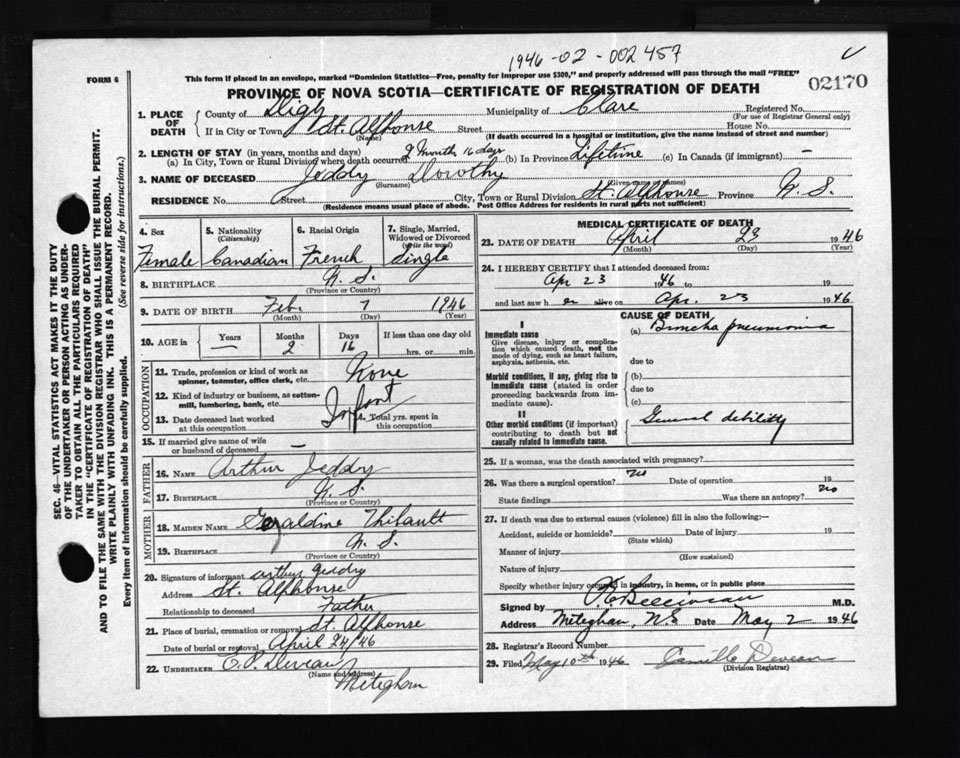 1946-02-002457
FORM 6
This form if placed in an envelope, marked "Dominion Statistics—Free, penalty for improper use $300," and properly addressed will pass through the mail "FREE"
02170
PROVINCE OF NOVA SCOTIA—CERTIFICATE OF REGISTRATION OF DEATH
1. PLACE OF DEATH County of Digby Municipality of Clare Registered No.
(For use of Registrar General only)
If in City or Town St. Alphonse Street House No.
(Name) (If death occurred in a hospital or institution, give the name instead of street and number)
2. LENGTH OF STAY (in years, months and days)
(a) In City, Town or Rural Division where death occurred 2 Months 16 days (b) In Province Lifetime (c) In Canada (if immigrant) —
3. NAME OF DECEASED Jeddy Dorothy
(Surname) (Given names)
RESIDENCE No. Street City, Town or Rural Division St. Alphonse Province N. S.
(Residence means usual place of abode. Post Office Address for residents in rural parts not sufficient)
SEC. 46—VITAL STATISTICS ACT MAKES IT THE DUTY
OF THE UNDERTAKER OR PERSON ACTING AS UNDER-
TAKER TO OBTAIN ALL THE PARTICULARS REQUIRED
IN THE "CERTIFICATE OF REGISTRATION OF DEATH"
AND TO FILE THE SAME WITH THE DIVISION REGISTRAR WHO SHALL ISSUE THE BURIAL PERMIT.
WRITE PLAINLY WITH UNFADING INK. THIS IS A PERMANENT RECORD.
Every item of information should be carefully supplied. (See reverse side for instructions.)
4. Sex 5. Nationality (Citizenship) 6. Racial Origin 7. Single, Married, Widowed or Divorced (write the word)
Female Canadian French Single
8. BIRTHPLACE N. S.
(Province or Country)
9. DATE OF BIRTH Feb. 7 1946
(Month) (Day) (Year)
10. AGE in Years Months Days If less than one day old
— 2 16 hrs. or min.
OCCUPATION
11. Trade, profession or kind of work as spinner, teamster, office clerk, etc. None
12. Kind of industry or business, as cotton-mill, lumbering, bank, etc. Infant
13. Date deceased last worked at this occupation 14. Total yrs. spent in this occupation
15. If married give name of wife or husband of deceased —
FATHER
16. NAME Arthur Jeddry
17. BIRTHPLACE N. S.
(Province or Country)
MOTHER
18. MAIDEN NAME Geraldine Thibault
19. BIRTHPLACE N. S.
(Province or Country)
20. Signature of informant arthur
Address St. Alphonse
Relationship to deceased Father
21. Place of burial, cremation or removal St. Alphonse
Date of burial or removal April 24/46
22. UNDERTAKER Deveau
(Name and address)
Meteghan
MEDICAL CERTIFICATE OF DEATH
23. DATE OF DEATH April 23 1946
(Month) (Day) (Year)
24. I HEREBY CERTIFY that I attended deceased from:
Apr 23 1946 to 19
and last saw her alive on Apr. 23 1946
CAUSE OF DEATH
I
Immediate cause
Give disease, injury or complication which caused death, not the mode of dying, such as heart failure, asphyxia, asthenia, etc.
(a) Broncho pneumonia
due to
Morbid conditions, if any, giving rise to immediate cause (stated in order proceeding backwards from immediate cause).
(b)
due to
(c)
II
Other morbid conditions (if important) contributing to death but not causally related to immediate cause.
General debility
25. If a woman, was the death associated with pregnancy?
26. Was there a surgical operation? no Date of operation 19
State findings Was there an autopsy? no
27. If death was due to external causes (violence) fill in also the following:—
Accident, suicide or homicide? Date of injury 19
(State which)
Manner of injury
(How sustained)
Nature of injury
Specify whether injury occurred in industry, in home, or in public place
Signed by M.D.
Address Meteghan, N.S Date May 2 1946
28. Registrar's Record Number
29. Filed May 10th 1946 Camille Deveau
(Division Registrar)